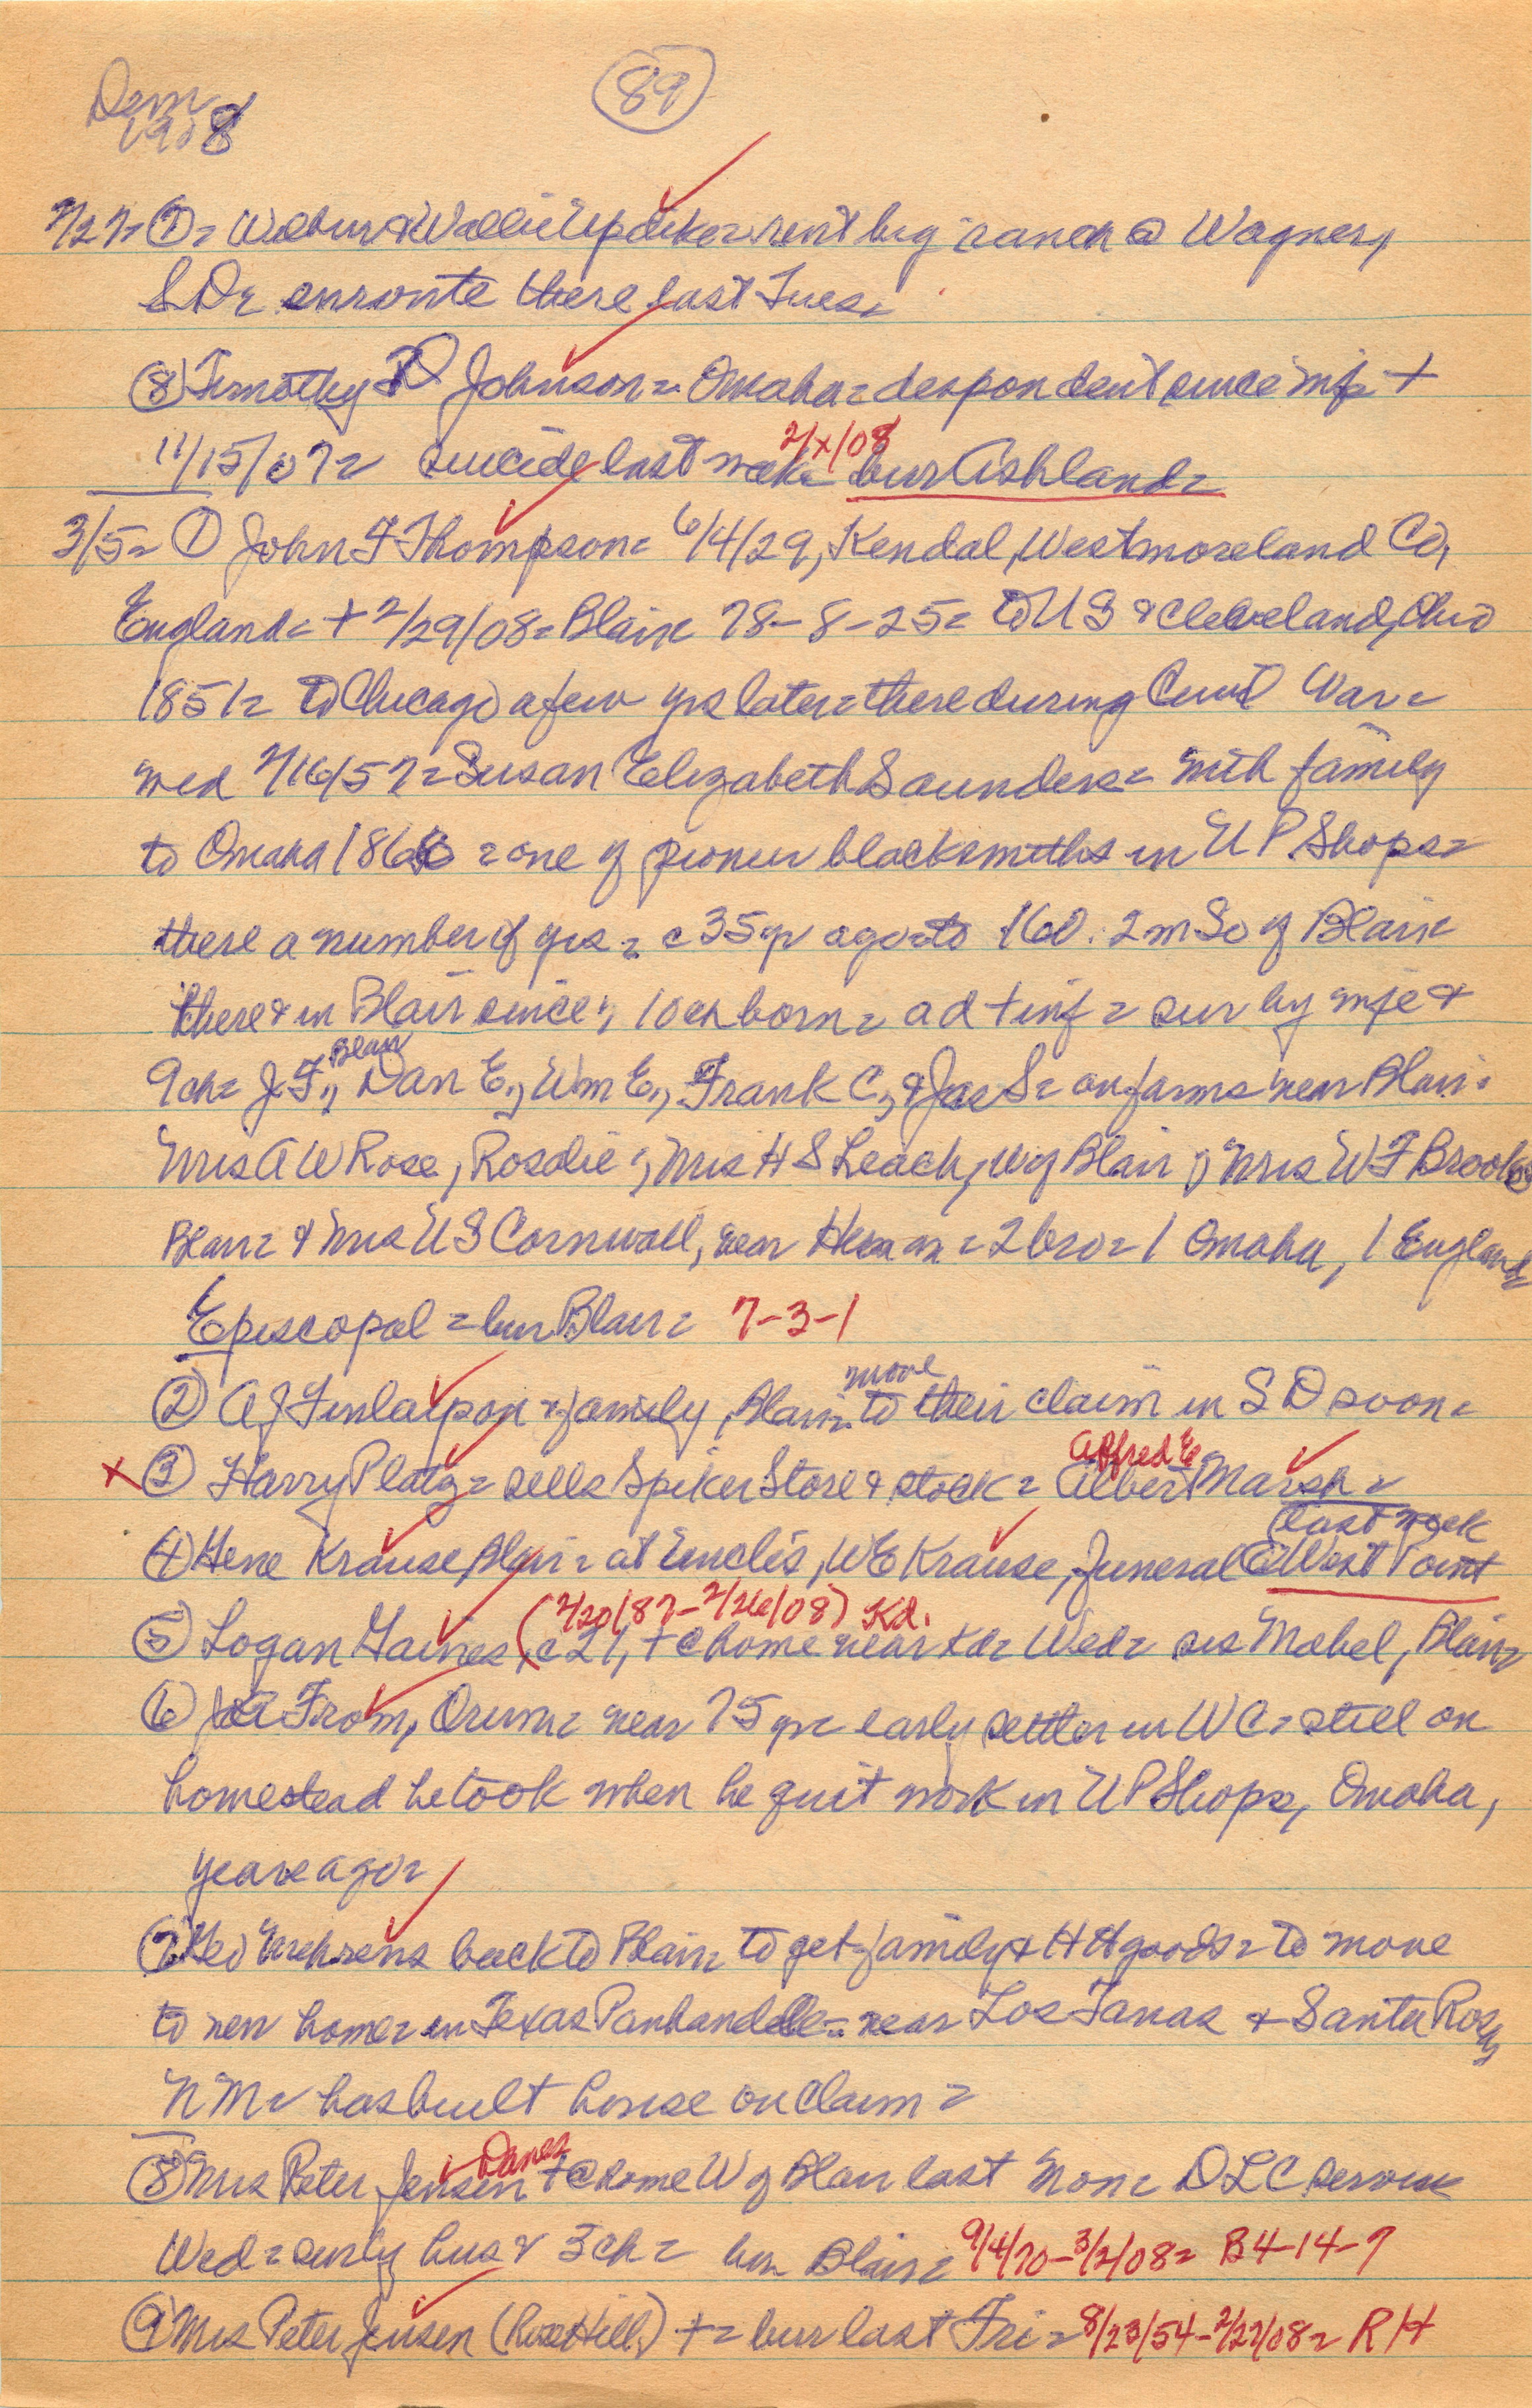 Dem 89
1908
2/27= ⑦= Wilbur & Wallie Updike= rent big ranch @ Wagner,
SD= enroute there last Tues=
⑧ Timothy D Johnson= Omaha= despondent since wife +
11/15/07= suicide last week= 2/x/08 bur Ashland=
3/5= ① John F Thompson= 6/4/29, Kendal, Westmoreland Co,
England= + 2/29/08= Blair 78-8-25= to US & Cleveland, Ohio
1851= to Chicago a few yrs later= there during Civil War=
wed 2/16/57= Susan Elizabeth Saunders= with family
to Omaha 1866 = one of pioneer blacksmiths in UP Shops=
there a number of yrs = c 35 yr ago= to 160. 2 m So of Blair
there & in Blair since; 10 ch born= a d + inf = sur by wife &
9 ch= J. F., Blair Dan E., Wm E., Frank C., & Jas S= on farms near Blair.
Mrs A W Rose, Rosalie; Mrs H S Leach, W of Blair; Mrs W F Brooks
Blair= & Mrs U S Cornwall, near Herman = 2 bro= 1 Omaha, 1 England
Episcopal = bur Blair= 7-3-1
② A J Finlayson & family, Blair= move to their claim in S D soon=
x ③ Harry Platz= sells Spiker Store & stock = Alfred E Albert Marsh=
④ Gene Krause, Blair= at uncle's, W E Krause, funeral @ West Point last week
⑤ Logan Gaines, (2/20/87-2/26/08) Kd. c 21, + @ home near Kd= Wed= sis Mabel, Blair=
⑥ From, Orum= near 75 yr= early settler in W C= still on
homestead he took when he quit work in UP Shops, Omaha,
years ago=
⑦ Geo Mehrens back to Blair= to get family & HH goods= to move
to new home= in Texas Panhandle= near Los Tanas & Santa Rosa,
NM= has built house on claim=
⑧ Mrs Peter Jensen Danes + @ home W of Blair last Mon= DLC services
Wed= sur by hus & 3 ch= bur Blair= 9/4/70-3/2/08= B4-14-7
⑨ Mrs Peter Jensen (Rose Hill) += bur last Fri= 8/23/54-2/27/08= R H